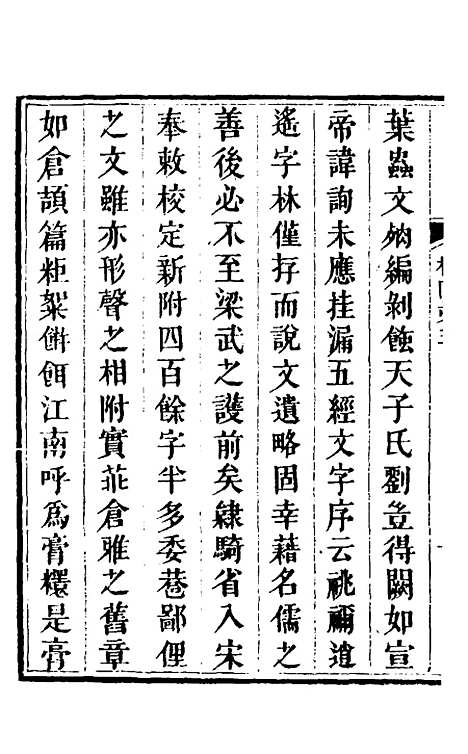 葉蟲文矧編剝蝕天子氏劉豈得闕如宣
帝諱詢未應挂漏五經文字序云祧禰逍
遙字林僅存而說文遺略固幸藉名儒之
善後必不至梁武之護前矣隷騎省入宋
奉敕校定新附四百餘字半多委巷鄙俚
之文雖亦形聲之相附實非倉雅之舊章
如倉頡篇粔絮餅餌江南呼爲膏糫是膏